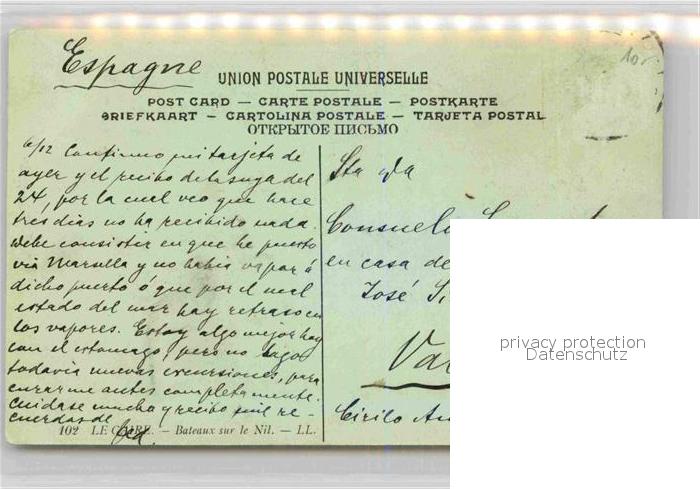 Espagne
UNION POSTALE UNIVERSELLE
POST CARD — CARTE POSTALE — POSTKARTE
BRIEFKAART — CARTOLINA POSTALE — TARJETA POSTAL
ОТКРЫТОЕ ПИСЬМО
6/12 Confirmo mi tarjeta de
ayer y el recibo de la suya del
24, por la cual veo que hace
tres dias no ha recibido nada.
Debe consistir en que he puesto
via Marsella y no habia vapor á
dicho puerto ó que por el mal
estado del mar hay retraso en
los vapores. Estoy algo mejor hoy
con el estomago, pero no hago
todavia nuevas excursiones, para
curarme antes completamente.
Cuidase mucho y reciba mil re-
cuerdos de
102 LE CAIRE. — Bateaux sur le Nil. — LL.
Sta
Consuelo
en casa de
José
Cirilo
privacy protection
Datenschutz